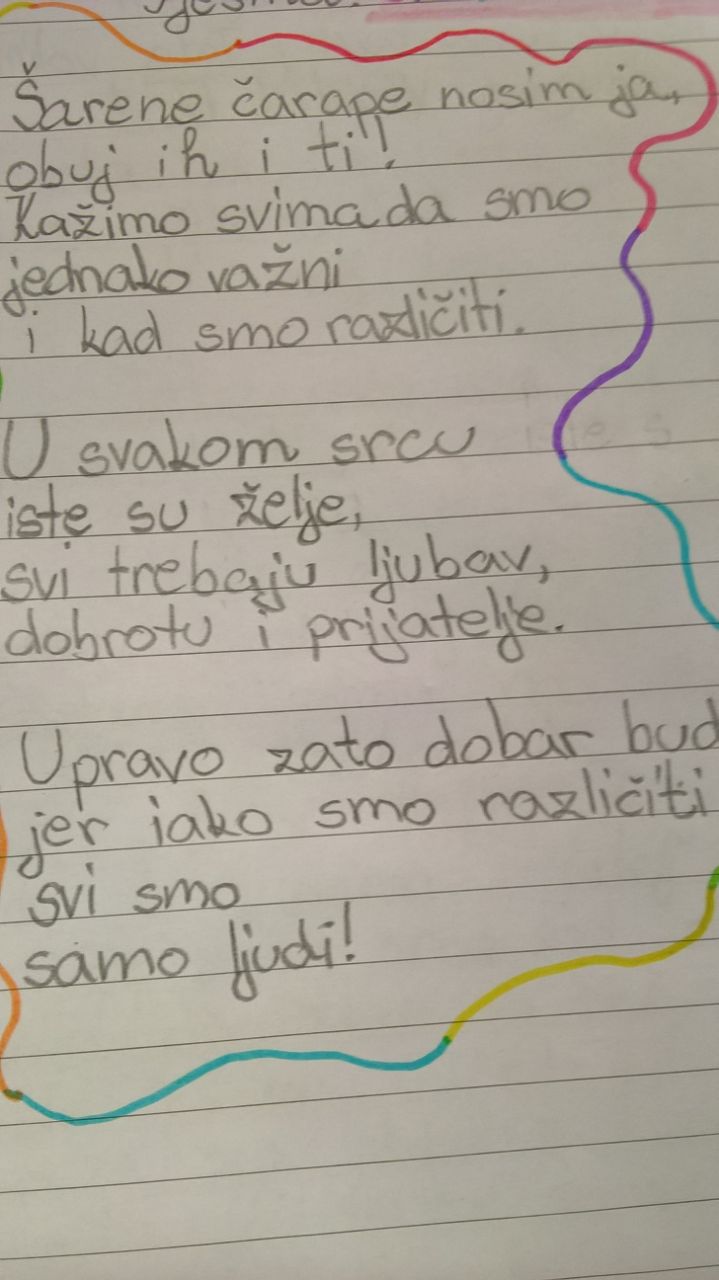 Šarene čarape nosim ja,
obuj ih i ti!
Kažimo svima da smo
jednako važni
i kad smo različiti.
U svakom srcu
iste su želje,
svi trebaju ljubav,
dobrotu i prijatelje.
Upravo zato dobar bud
jer iako smo različiti
svi smo
samo ljudi!